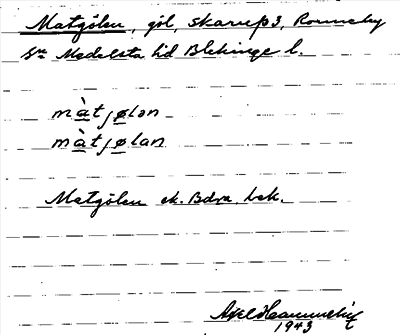 Matgölen, göl, Skarup 3, Ronneby
Sn Medelsta hd Blekinge l.
màtjølən
màtjølan
Matgölen ek. Bdrn. bek.
1943